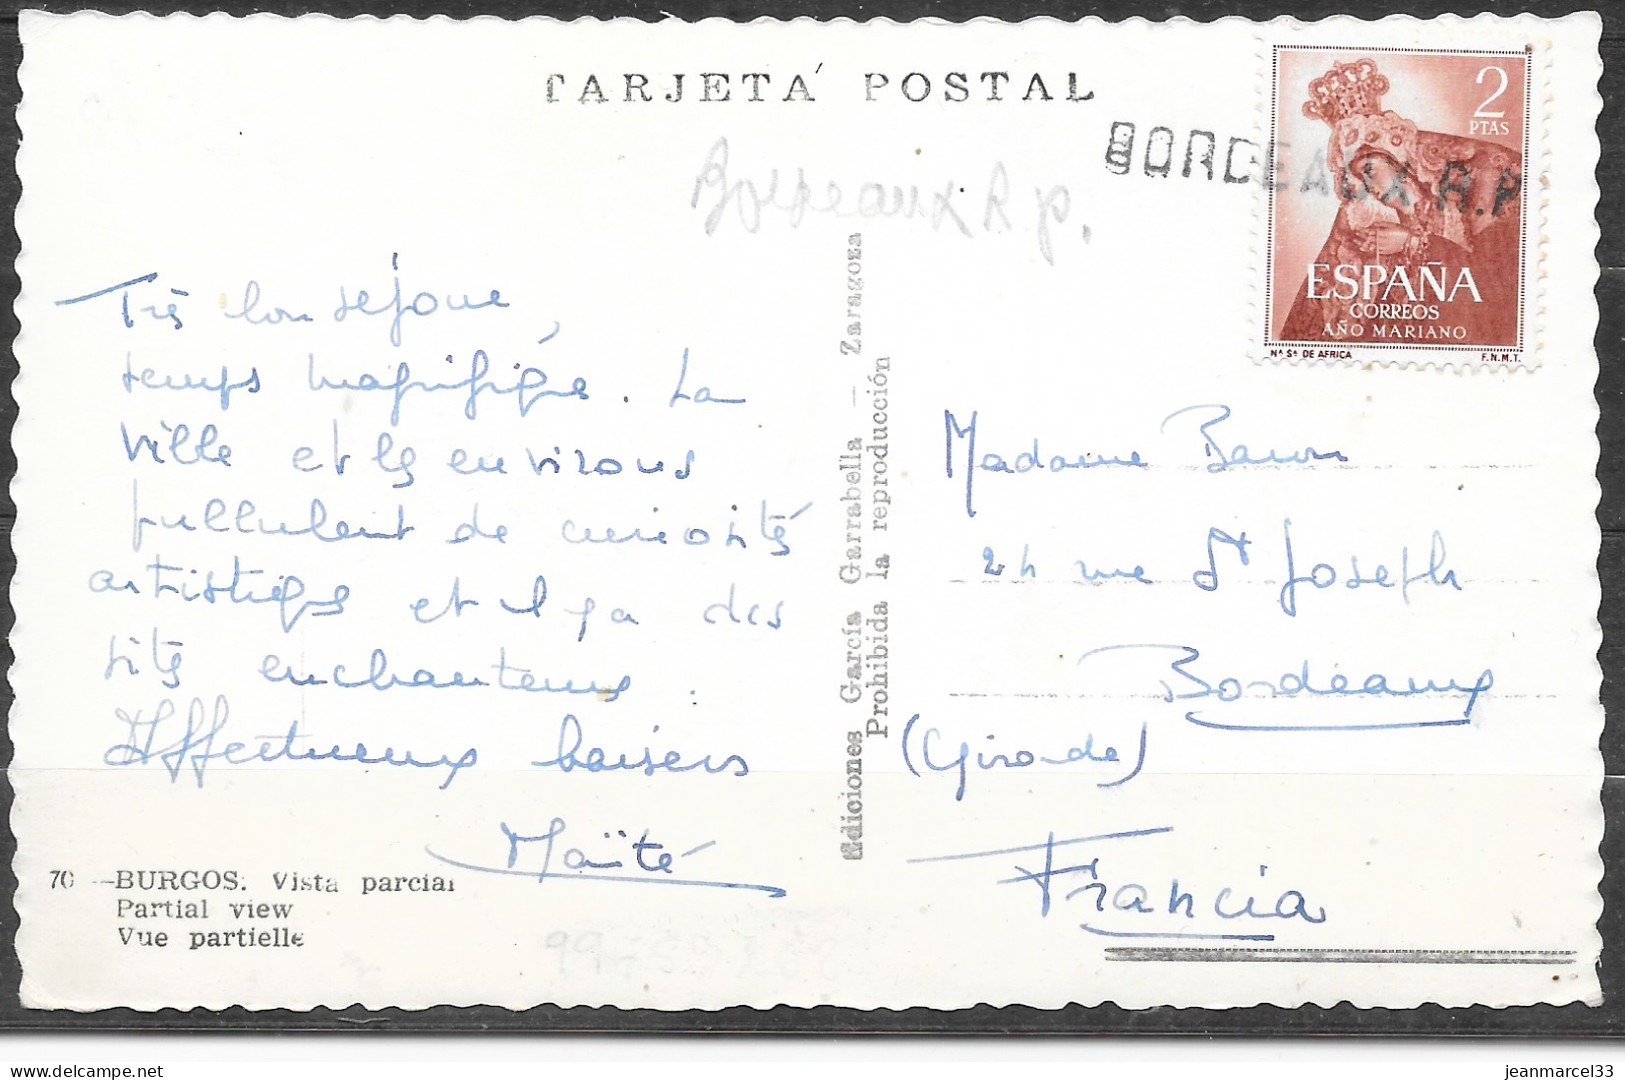 TARJETA POSTAL
BORDEAUX R.P
Bordeaux R.p.
2
PTAS
ESPAÑA
CORREOS
AÑO MARIANO
Nª Sª DE AFRICA F.N.M.T.
Très bon séjour,
temps magnifique. La
ville et les environs
pullulent de curiosités
artistiques et il y a des
sites enchanteurs.
Affectueux baisers
Maïté
70 -BURGOS. Vista parcial
Partial view
Vue partielle
Ediciones García Garrabella - Zaragoza
Prohibida la reproducción
Madame Baron
24 rue St Joseph
Bordeaux
(Gironde)
Francia
jeanmarcel33